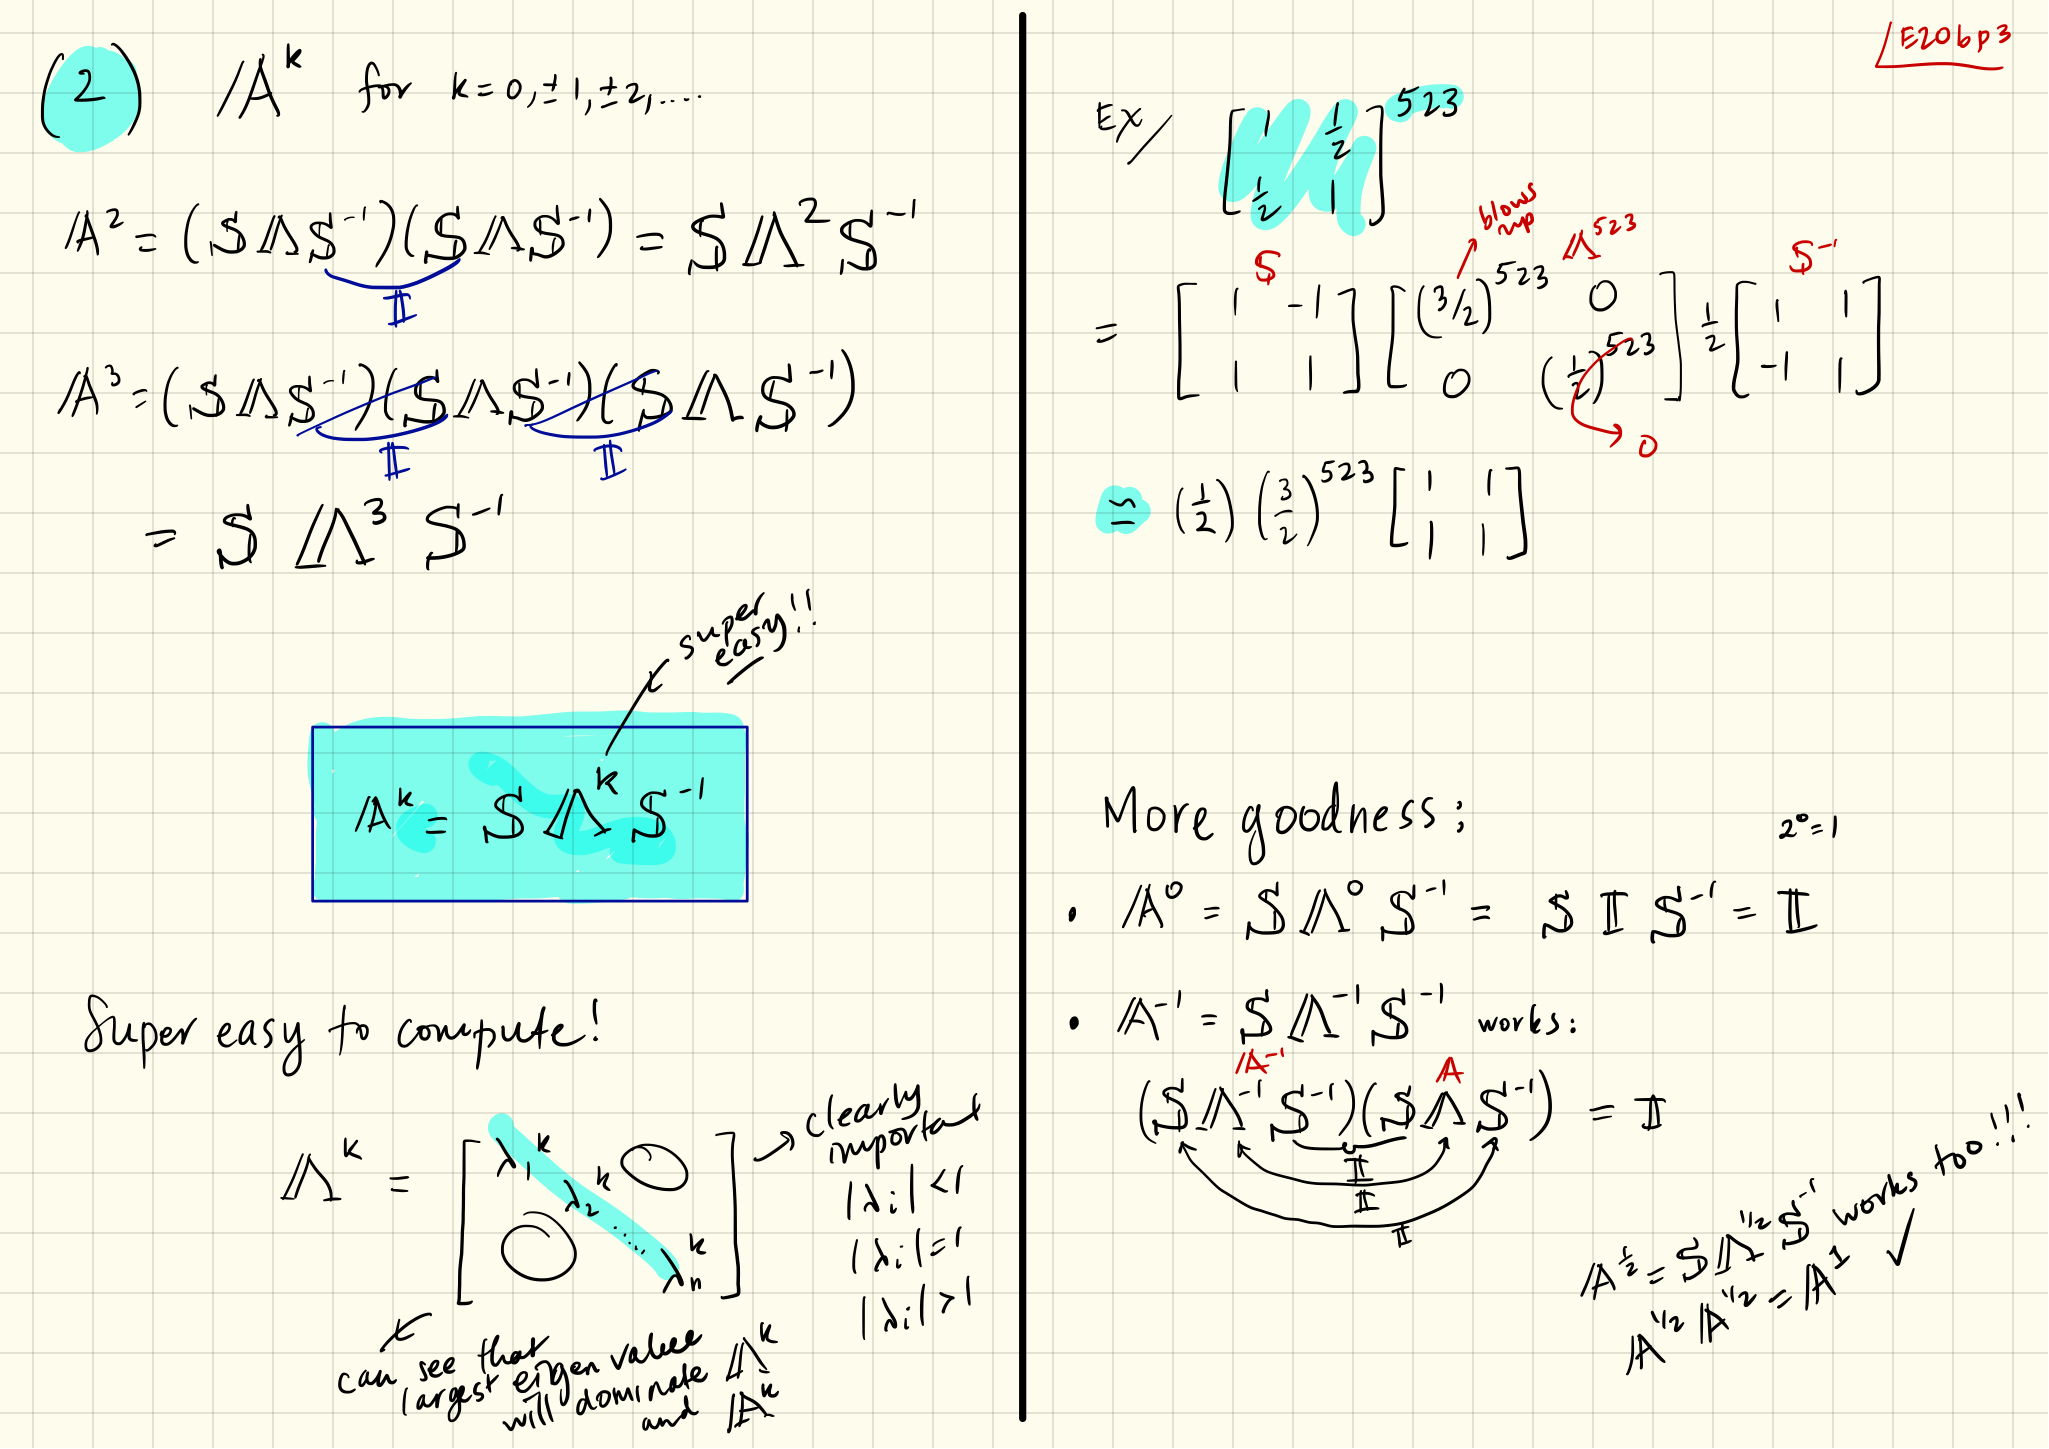 (2) 𝔸^k for k = 0, ±1, ±2, ....
𝔸² = (𝕊Λ𝕊⁻¹)(𝕊Λ𝕊⁻¹) = 𝕊Λ²𝕊⁻¹
𝕀
𝔸³ = (𝕊Λ𝕊⁻¹)(𝕊Λ𝕊⁻¹)(𝕊Λ𝕊⁻¹)
𝕀 𝕀
= 𝕊 Λ³ 𝕊⁻¹
super
easy!!
𝔸^k = 𝕊 Λ^k 𝕊⁻¹
Super easy to compute!
Λ^k = [ λ₁^k λ₂^k .... λₙ^k 0 0 ]
clearly
important
|λᵢ| < 1
|λᵢ| = 1
|λᵢ| > 1
can see that
largest eigenvalue
will dominate Λ^k
and 𝔸^k
E20bp3
Ex/ [ 1 1/2
1/2 1 ]^523
blows
up
𝕊 Λ^523 𝕊⁻¹
= [ 1 -1 ] [ (3/2)^523 0 ] 1/2 [ 1 1 ]
[ 1 1 ] [ 0 (1/2)^523 ] [ -1 1 ]
0
≃ (1/2) (3/2)^523 [ 1 1
1 1 ]
More goodness:
2⁰=1
• 𝔸⁰ = 𝕊 Λ⁰ 𝕊⁻¹ = 𝕊 𝕀 𝕊⁻¹ = 𝕀
• 𝔸⁻¹ = 𝕊 Λ⁻¹ 𝕊⁻¹ works:
𝔸⁻¹ 𝔸
(𝕊 Λ⁻¹ 𝕊⁻¹)(𝕊 Λ 𝕊⁻¹) = 𝕀
𝕀
𝕀
𝕀
𝔸^½ = 𝕊Λ^1/2 𝕊⁻¹ works too!!!
𝔸^1/2 𝔸^1/2 = 𝔸¹ ✓